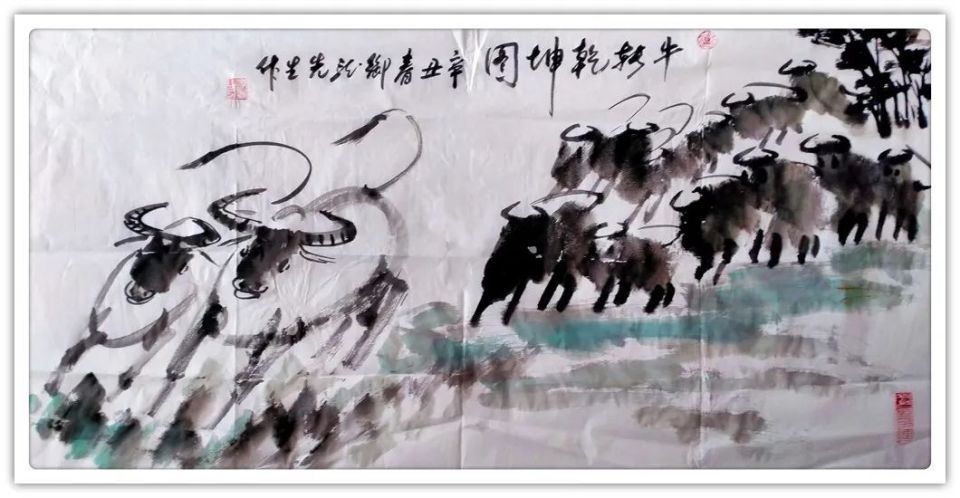 牛转乾坤图 辛丑春御龙先生作